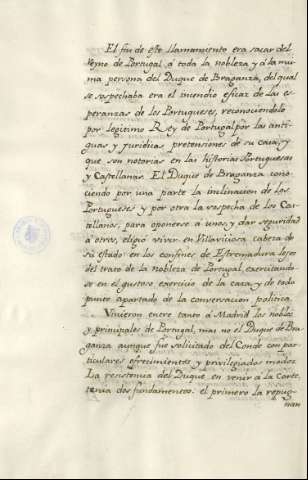 El fin de este llamamiento era sacar del
Reyno de Portugal á toda la nobleza y á la mis-
ma persona del Duque de Braganza, del qual
se sospechaba era el incendio eficaz de las es-
peranzas de los Portugueses, reconociendolo
por legitimo Rey de Portugal por las anti-
guas y juridicas pretensiones de su casa, y
que son notorias en las historias Portuguesas
y Castellanas. El Duque de Braganza cono-
ciendo por una parte la inclinacion de los
Portugueses y por otra la sospecha de los Cas-
tellanos, para oponerse á unos y dar seguridad
á otros, eligió vivir en Villaviciosa cabeza de
su estado en los confines de Estremadura lejos
del trato de la nobleza de Portugal exercitando-
se en el gustoso exercicio de la caza, y de todo
punto apartado de la conversacion politica.
Vinieron entre tanto á Madrid los nobles
y principales de Portugal, mas no el Duque de Bra-
ganza aunque fue solicitado del Conde con par-
ticulares ofrecimientos y privilegiados modos.
La resistencia del Duque en venir á la Corte,
tenia dos fundamentos: el primero la repug-
nan